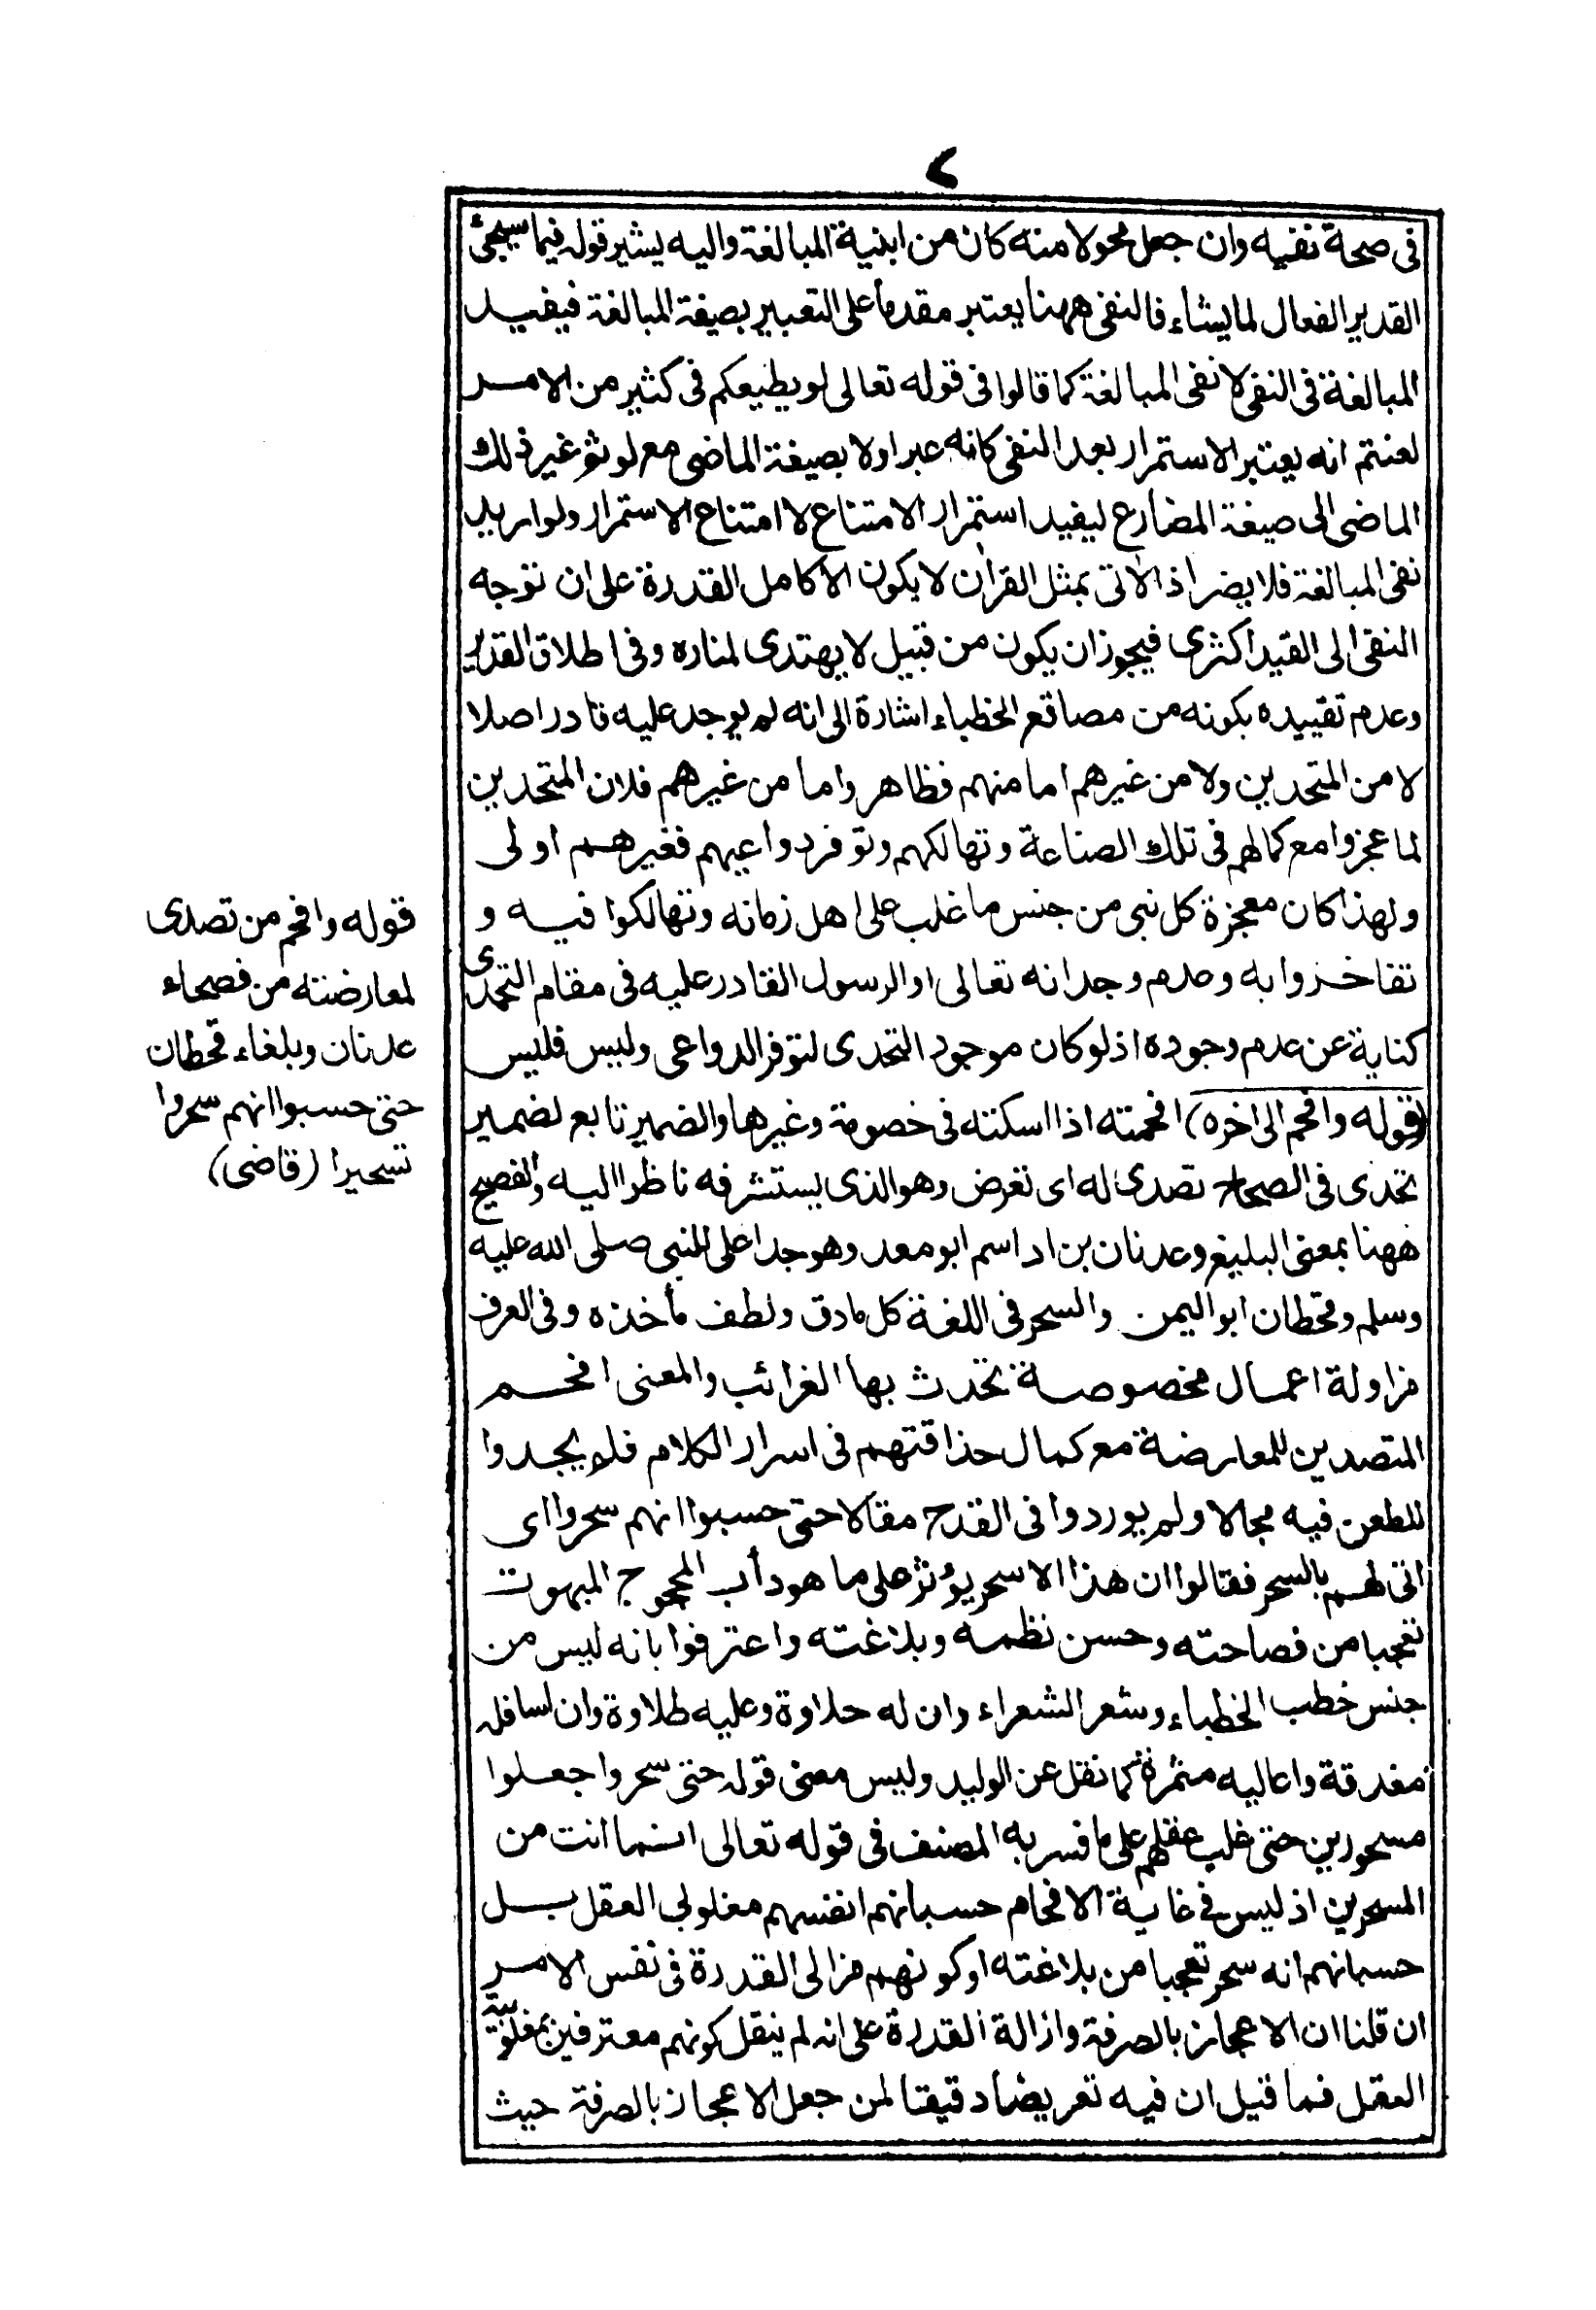 في صحة نفيه وان جعل محولا منه كان من ابنية المبالغة واليه يشير قوله فيما سيجئ
القدير الفعال لما يشاء فالنفي ههنا يعتبر مقدما على التعبير بصيغة المبالغة فيفيد
المبالغة فى النفى لا نفى المبالغة كما قالوا فى قوله تعالى لو يطيعكم فى كثير من الامر
لعنتم انه يعتبر الاستمرار بعد النفى كانه عبر اولا بصيغة الماضى مع لو ثم غير ذلك
الماضى الى صيغة المضارع ليفيد استمرار الامتناع لا امتناع الاستمرار ولو اريد
نفى المبالغة فلا يضر اذ الاتى بمثل القران لا يكون الا كامل القدرة على ان توجه
النفى الى القيد اكثرى فيجوز ان يكون من قبيل لا يهتدى لمناره وفى اطلاق القدير
وعدم تقييده بكونه من مصاقع الخطباء اشارة الى انه لم يوجد عليه قادر اصلا
لا من المتحدين ولا من غيرهم اما منهم فظاهر واما من غيرهم فلان المتحدين
لما عجزوا مع كمالهم فى تلك الصناعة وتهالكهم وتوفر دواعيهم فغيرهم اولى
ولهذا كان معجزة كل نبى من جنس ما غلب على اهل زمانه وتهالكوا فيه و
تفاخروا به وعدم وجدانه تعالى او الرسول القادر عليه فى مقام التحدى
كناية عن عدم وجوده اذ لو كان موجود التحدى لتوفر الدواعى وليس فليس
(قوله وافحم الى اخره) افحمته اذا اسكته فى خصومة وغيرها والضمير تابع لضمير
تحدى فى الصحاح تصدى له اى تعرض وهو الذى يستشرفه ناظرا اليه والفصيح
ههنا بمعنى البليغ وعدنان بن اد اسم ابو معد وهو جد اعلى للنبى صلى الله عليه
وسلم وقحطان ابو اليمن والسحر فى اللغة كل مادق ولطف مأخذه وفى العرف
مزاولة اعمال مخصوصة تحدث بها الغرائب والمعنى افحم
المتصدين للمعارضة مع كمال حذاقتهم فى اسرار الكلام فلم يجدوا
للطعن فيه مجالا ولم يوردوا فى القدح مقالا حتى حسبوا انهم سحروا اى
اتى لهم بالسحر فقالوا ان هذا الا سحر يؤثر على ما هو دأب المحجوج المبهوت
تعجبا من فصاحته وحسن نظمه وبلاغته واعترفوا بانه ليس من
جنس خطب الخطباء وشعر الشعراء وان له حلاوة وعليه طلاوة وان اسافله
مغدقة واعاليه مثمرة كما نقل عن الوليد وليس معنى قوله حتى سحروا جعلوا
مسحورين حتى غلب عقلهم على ما فسر به المصنف فى قوله تعالى انما انت من
المسحرين اذ ليس فى غاية الافحام حسبانهم انفسهم مغلوبى العقل بل
حسبانهم انه سحر تعجبا من بلاغته او كونهم مزالى القدرة فى نفس الامر
ان قلنا ان الاعجاز بالصرفة وازالة القدرة على انه لم ينقل كونهم معترفين بمغلوبية
العقل فما قيل ان فيه تعريضا دقيقا لمن جعل الاعجاز بالصرفة حيث
قوله وافحم من تصدى
لمعارضته من فصحاء
عدنان وبلغاء قحطان
حتى حسبوا انهم سحروا
تسحيرا (قاضى)